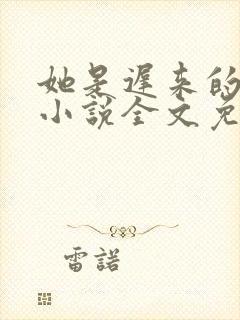 她是遲来的
小說全文免
雷諾